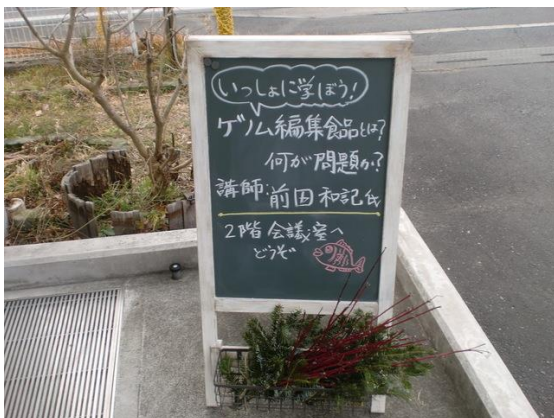 いっしょに学ぼう!
ゲノム編集食品とは?
何が問題か?
講師:前田和記氏
2階会議室へ
どうぞ